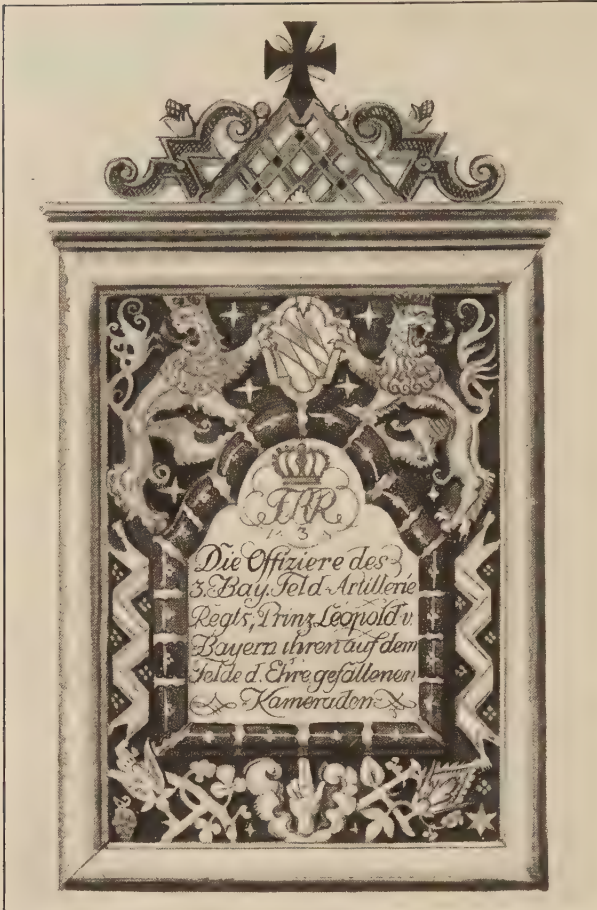 FAR
3
Die Offiziere des
3. Bay. Feld-Artillerie
Regts, Prinz Leopold v.
Bayern ihren auf dem
Felde d. Ehre gefallenen
Kameraden